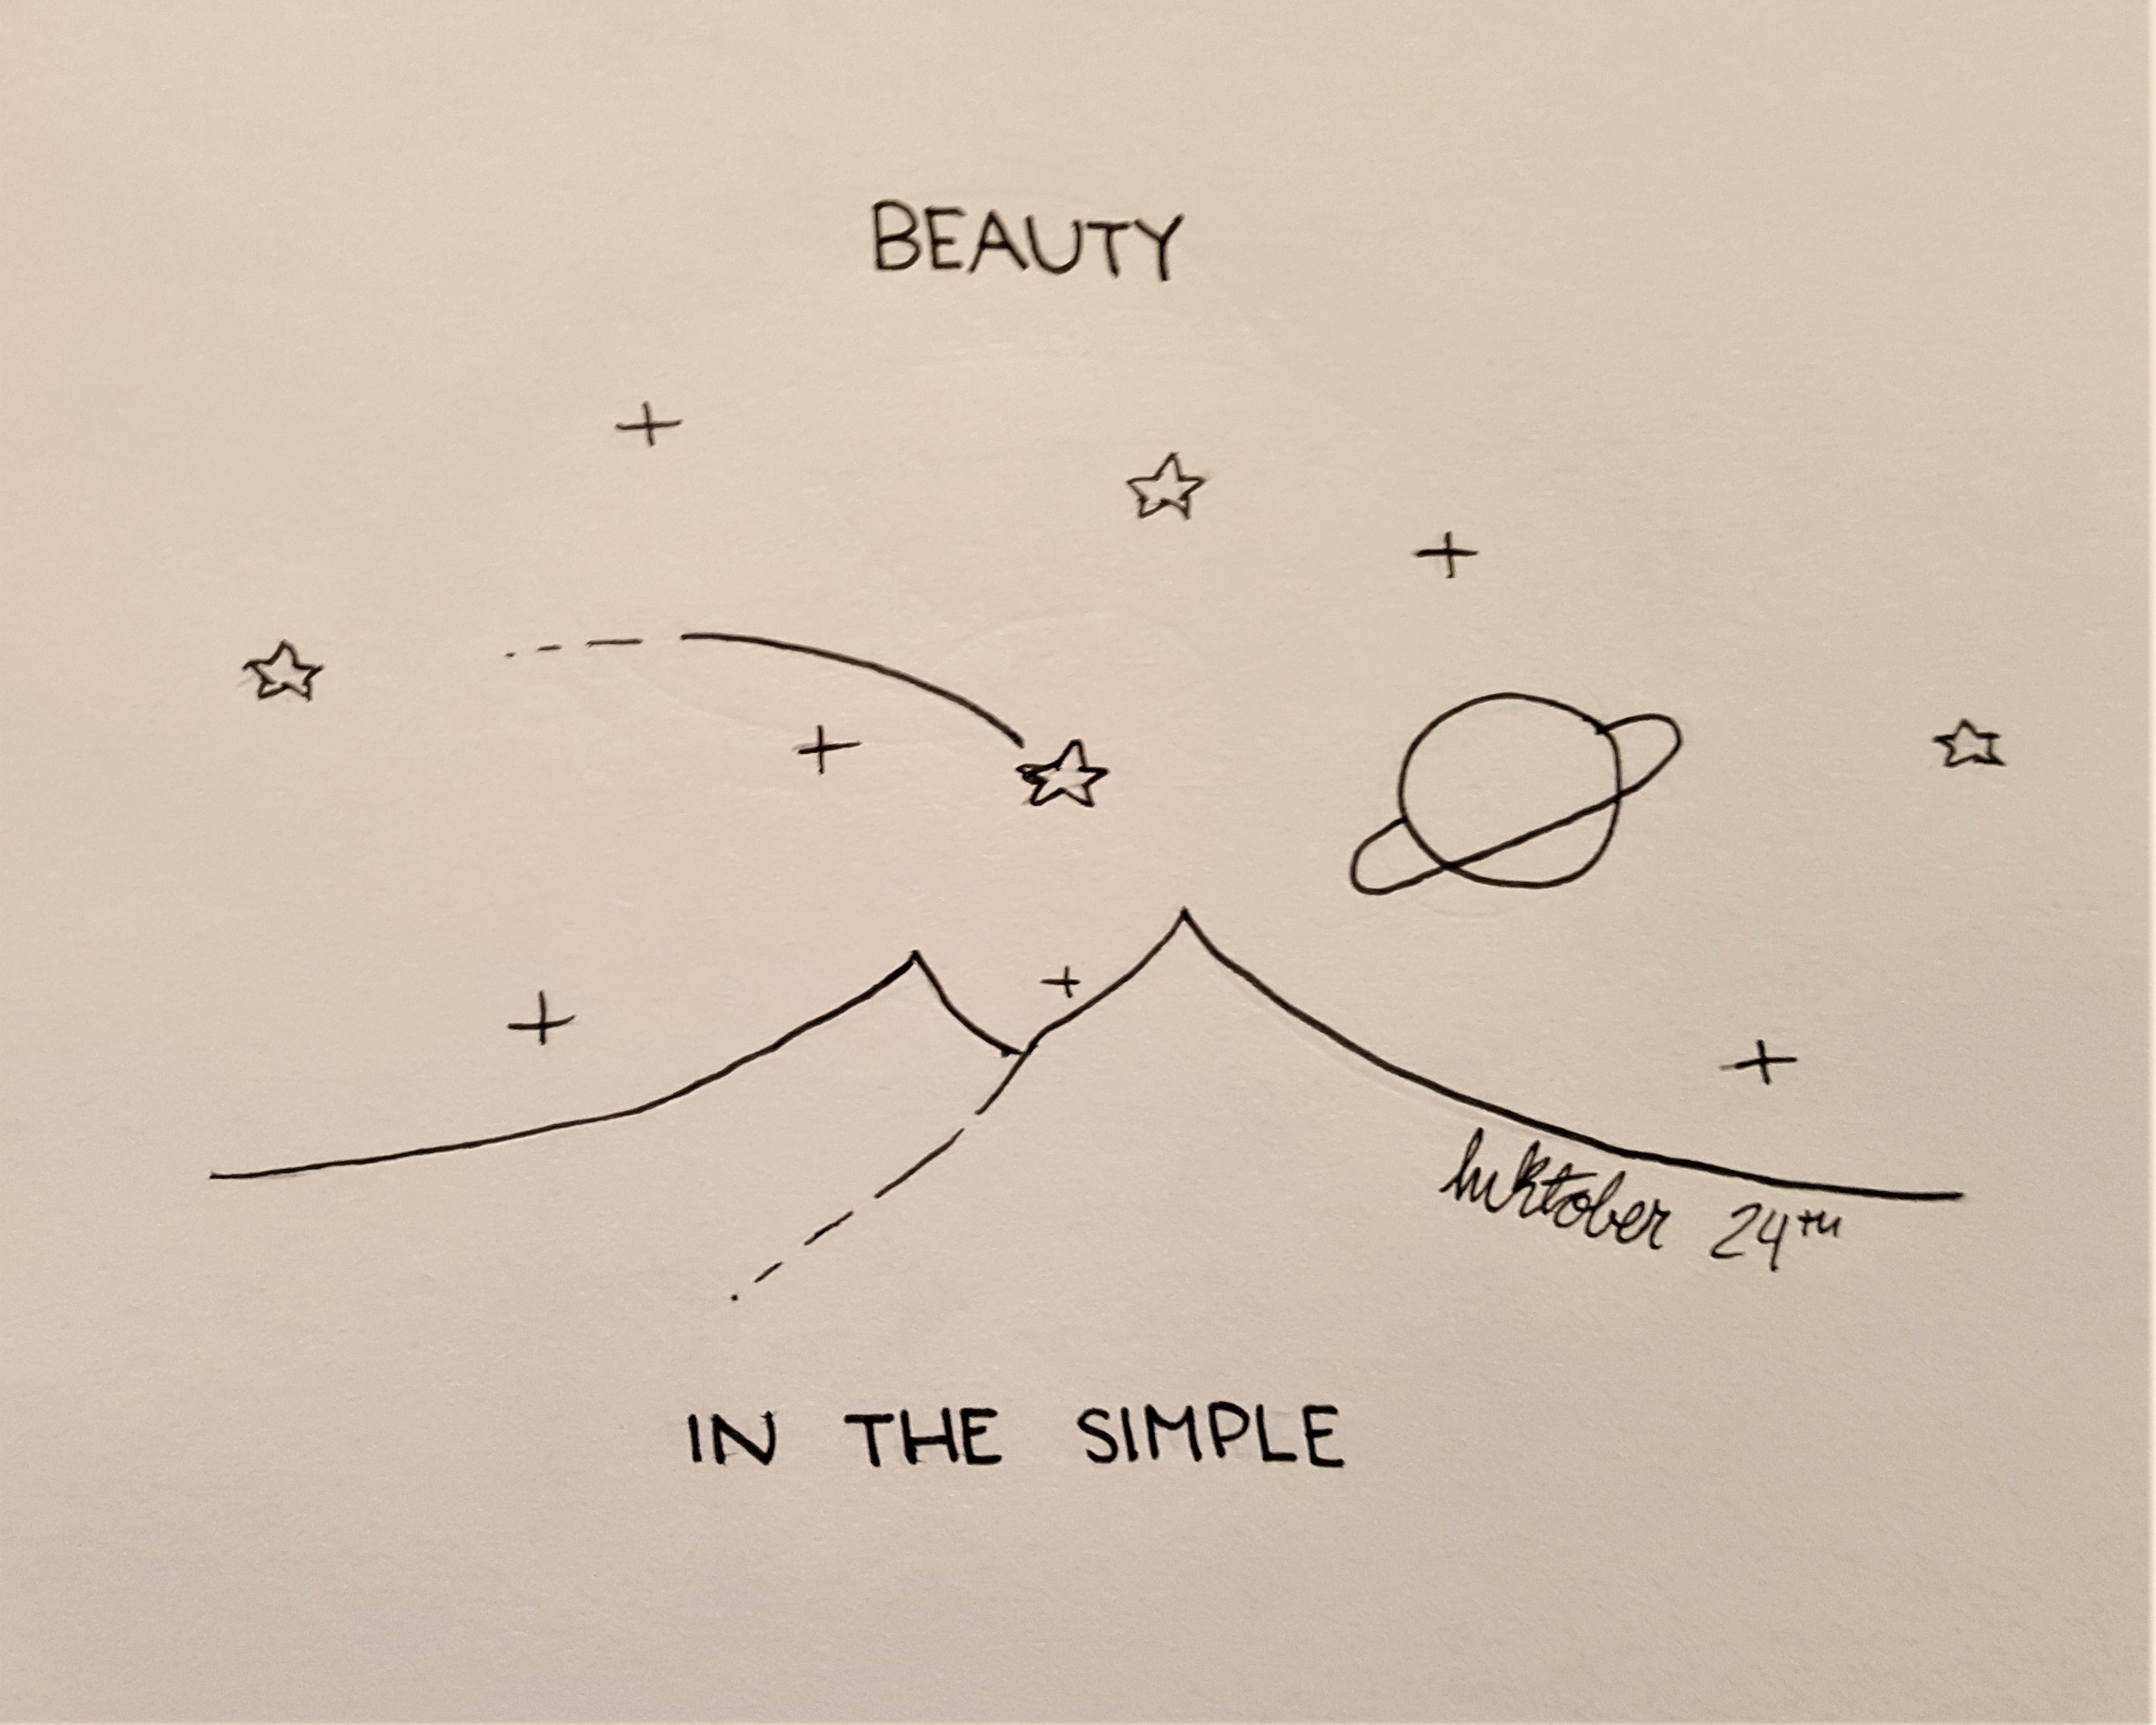 BEAUTY
Inktober 24TH
IN THE SIMPLE